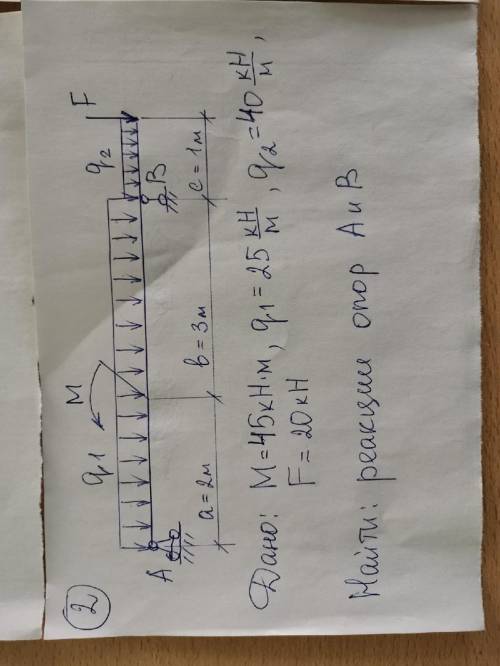 2
q1 M q2 F
A B
a=2м в=3м c=1м
Дано: M=45кН·м, q1=25 кН/м, q2=40 кН/м,
F=20кН
Найти: реакции опор А и В